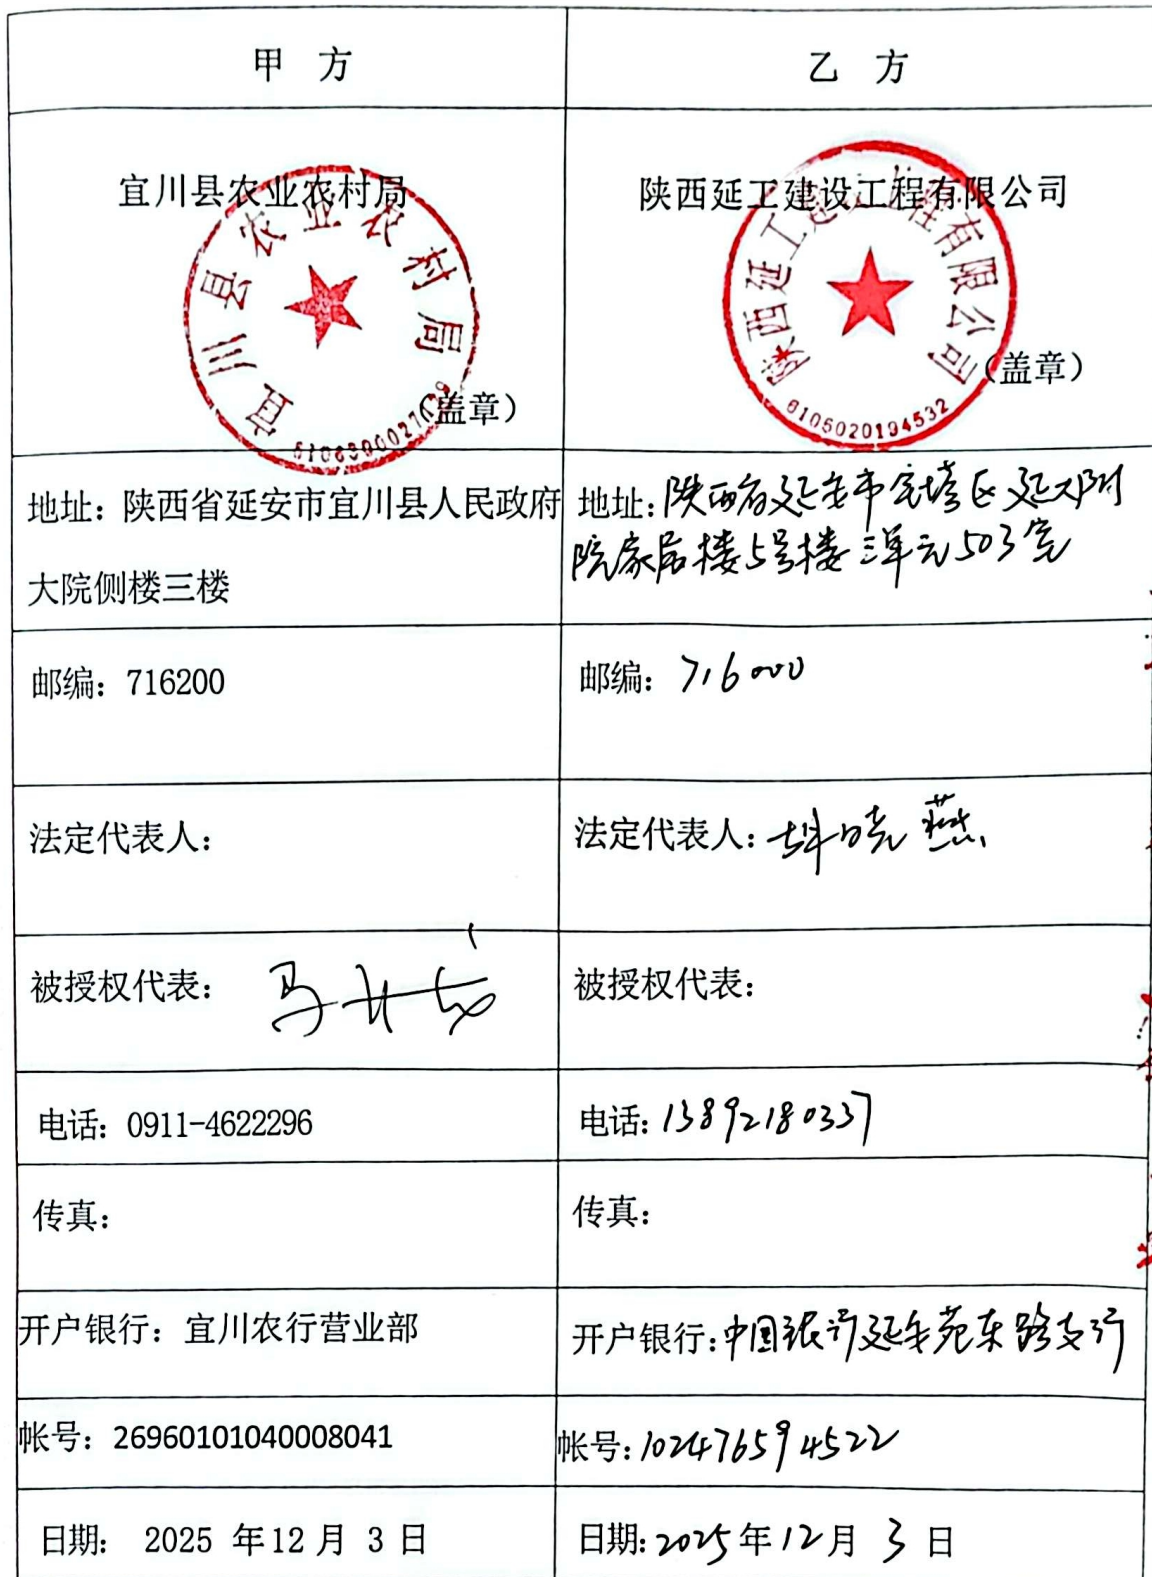 甲 方
乙 方
宜川县农业农村局
陕西延工建设工程有限公司
宜川县农业农村局
陕西延工建设工程有限公司
(盖章)
(盖章)
6105020194532
地址：陕西省延安市宜川县人民政府
大院侧楼三楼
地址：陕西省延安市宝塔区延大附
院家居楼5号楼三单元503室
邮编：716200
邮编：716000
法定代表人：
法定代表人：胡晓燕
被授权代表：
被授权代表：
电话：0911-4622296
电话：13892180337
传真：
传真：
开户银行：宜川农行营业部
开户银行：中国银行延安苑东路支行
帐号：26960101040008041
帐号：102476594522
日期： 2025 年12 月 3 日
日期：2025年12月 3 日